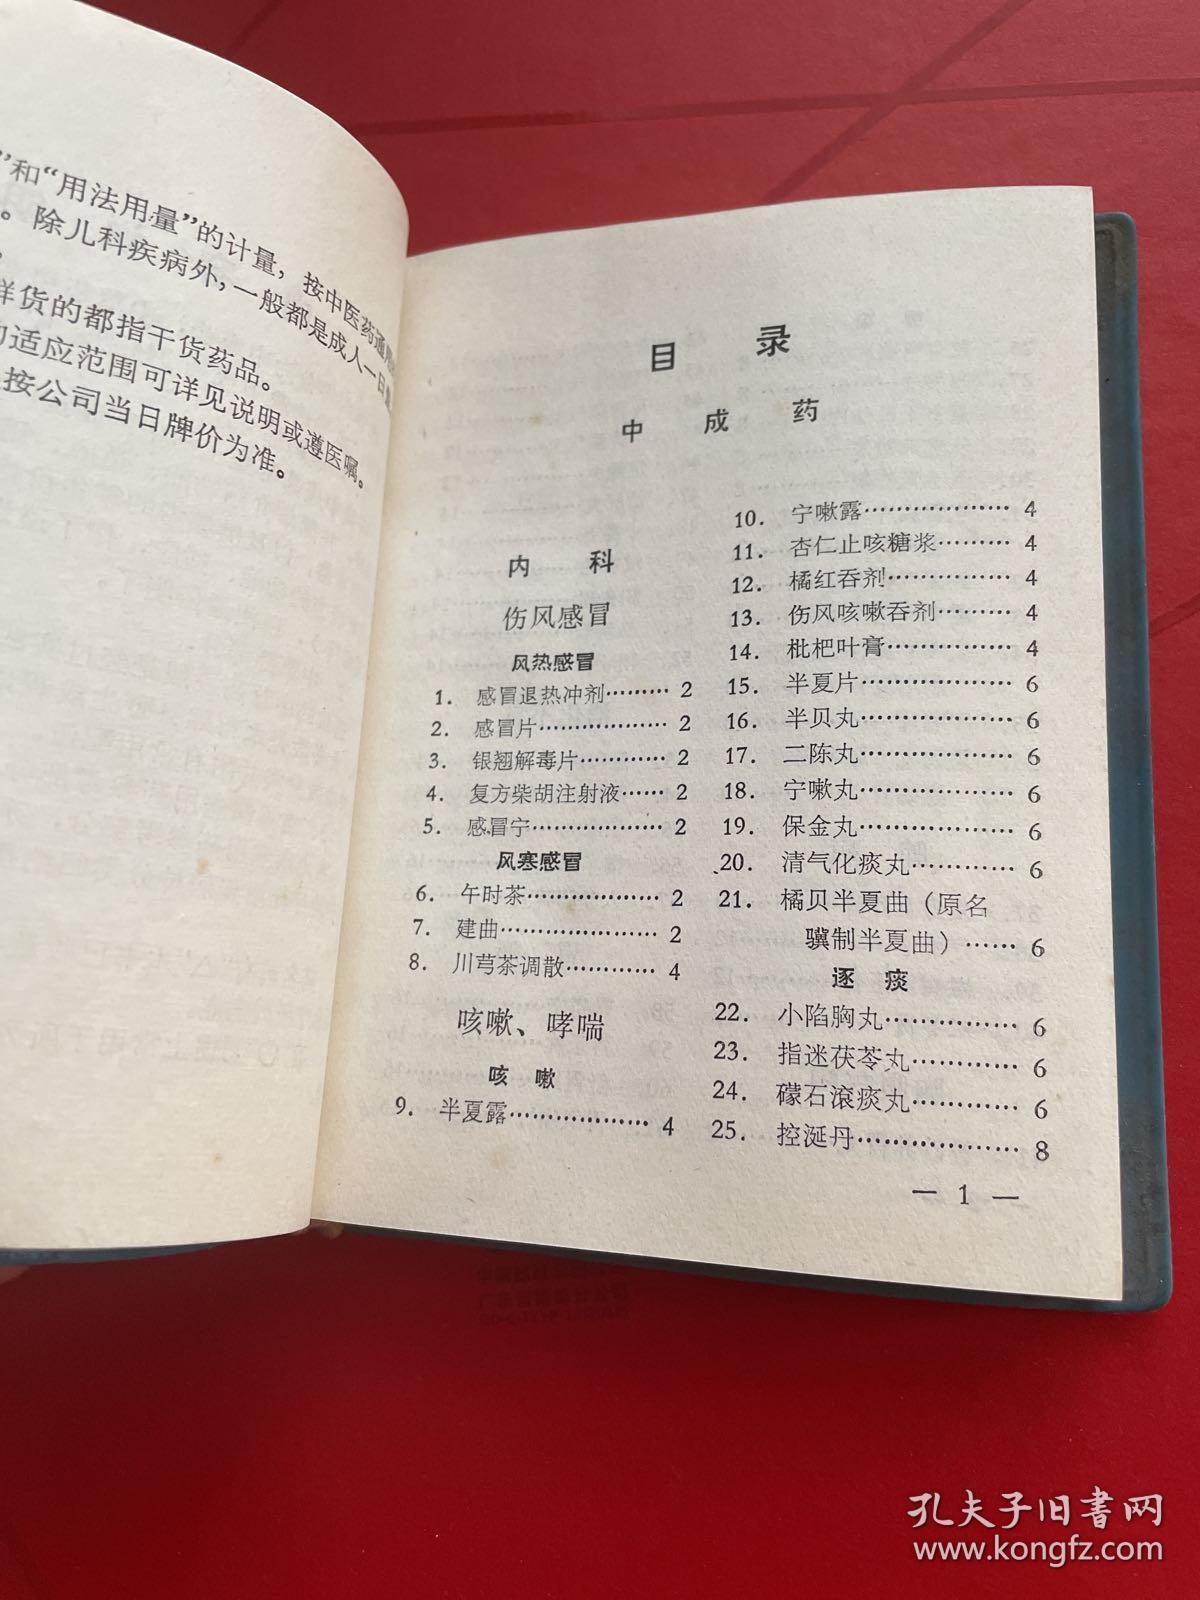 ”和“用法用量”的计量，按中医药通
。除儿科疾病外，一般都是成人一日
样货的都指干货药品。
适应范围可详见说明或遵医嘱。
按公司当日牌价为准。
目 录
中 成 药
内 科
伤风感冒
风热感冒
1. 感冒退热冲剂………2
2. 感冒片…………………2
3. 银翘解毒片…………2
4. 复方柴胡注射液……2
5. 感冒宁…………………2
风寒感冒
6. 午时茶…………………2
7. 建曲……………………2
8. 川芎茶调散…………4
咳嗽、哮喘
咳 嗽
9. 半夏露…………………4
10. 宁嗽露…………………4
11. 杏仁止咳糖浆………4
12. 橘红吞剂………………4
13. 伤风咳嗽吞剂………4
14. 枇杷叶膏………………4
15. 半夏片…………………6
16. 半贝丸…………………6
17. 二陈丸…………………6
18. 宁嗽丸…………………6
19. 保金丸…………………6
20. 清气化痰丸…………6
21. 橘贝半夏曲（原名
骥制半夏曲）……6
逐 痰
22. 小陷胸丸………………6
23. 指迷茯苓丸…………6
24. 礞石滚痰丸…………6
25. 控涎丹…………………8
— 1 —
孔夫子旧书网
www.kongfz.com